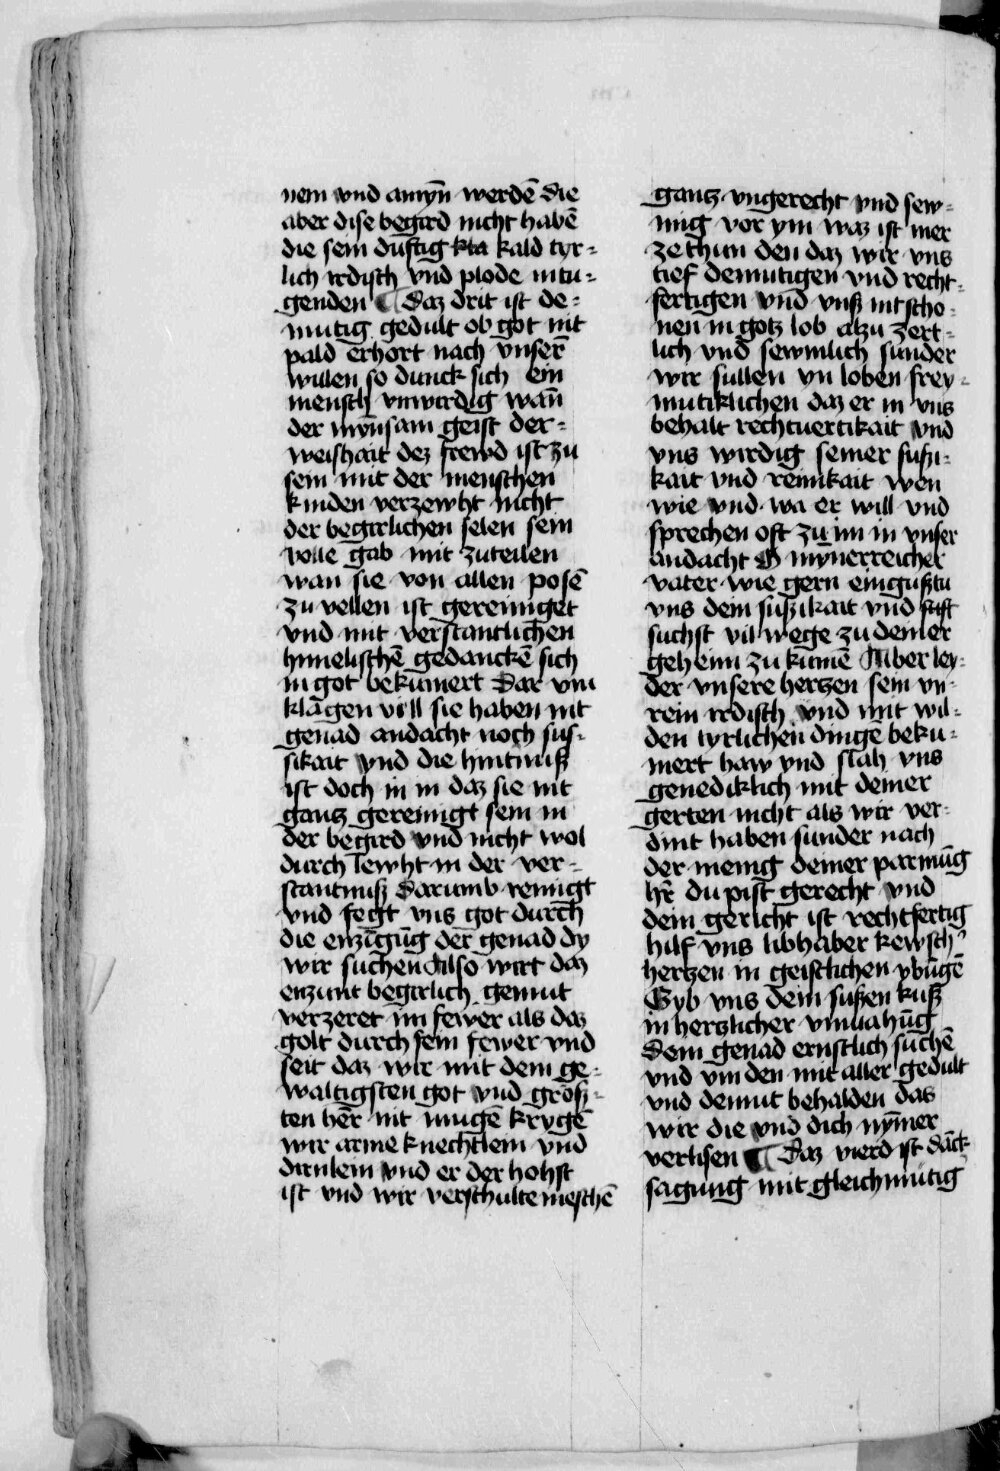 nem vnd amÿn werdē die
aber dise begird nicht habē
die sein dustig kta kald tyr-
lich irdisch vnd plode in tu-
genden ¶ Daz drit ist de-
mutig gedult ob got nit
pald erhort nach vnserm
willen so dunck sich ein
mensch vnwirdig wañ
der mynsam geist der
weishait dez frewd ist zu
sein mit der menschen
kinden verzewht nicht
der begirlichen selen sein
volle gab mit zuteilen
wan sie von allen posē
zu vellen ist gereiniget
vnd mit verstantlichen
himelischē gedanckē sich
in got bekumert Dar vm
klagen vill sie haben nit
genad andacht noch sus-
sikait vnd die hintnuß
ist doch in in daz sie nit
gantz gereinigt sein in
der begird vnd nicht wol
durch lewht in der ver-
stantnuß Darumb reinigt
vnd fegt vns got durch
die enzügūg der genad dy
wir suchen Also wirt daz
enzunt begirlich gemut
verzeret im fewer als daz
golt durch sein fewer vnd
seit daz wir mit dem ge-
waltigsten got vnd groß-
ten hēr nit mugē krygē
wir arme knechtlein vnd
dirnlein vnd er der hohst
ist vnd wir verschulte meschē
gantz vngerecht vnd sew-
mig vor ym waz ist mer
ze thun den daz wir vns
tief demutigen vnd recht-
fertigen vnd vnß nit scho-
nen in gotz lob alzu zert-
lich vnd sewmlich sunder
wir sullen yn loben frey-
mutiklichen daz er in vns
behalt rechtuertikait vnd
vns wirdig seiner sussi-
kait vnd reinikait wen
wie vnd wa er will vnd
sprechen oft zu im in vnser
andacht O mynerreicher
vater wie gern eingußtu
vns dein sußikait vnd stift
suchst vil wege zu deiner
geheim zu kumē Aber ley-
der vnsere hertzen sein vn-
rein irdisch vnd mit wil-
den tyrlichen dingē beku-
mert haw vnd slah vns
genediklich mit deiner
gerten nicht als wir ver-
dint haben sunder nach
der menig deiner parmūg
hr̄ du pist gerecht vnd
dein gericht ist rechtfertig
hilf vns libhaber kewsch'
hertzen in geistlichen vbūgē
Gyb vns dein sußen kuß
in hertzlicher vmuahūg
Dein genad ernstlich suchē
vnd vinden mit aller gedult
vnd demut behalden das
wir die vnd dich nȳmer
verlisen ¶ Daz vierd ist dāck
sagung mit gleichmutig